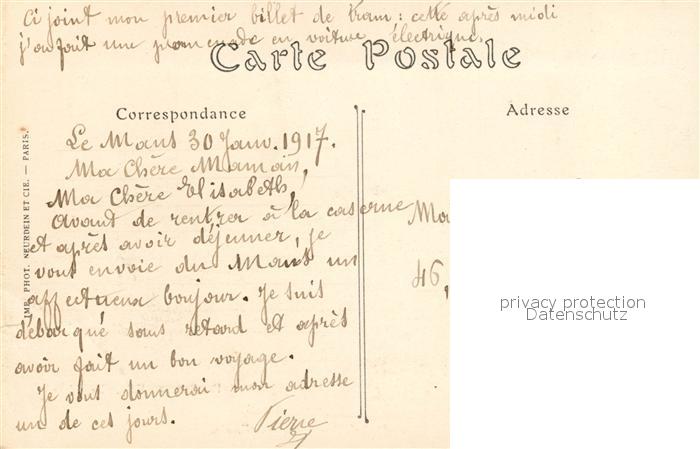 Ci joint mon premier billet de tram : cette après midi
j'ai fait une promenade en voiture électrique.
Carte Postale
Correspondance
Adresse
Le Mans 30 Janv. 1917.
Ma Chère Maman,
Ma Chère Elisabeth,
Avant de rentrer à la caserne
et après avoir déjeuner, je
vous envoie du Mans un
affectueux bonjour. Je suis
débarqué sans retard et après
avoir fait un bon voyage.
Je vous donnerai mon adresse
un de ces jours.
Pierre
Ma
46,
IMP. PHOT. NEURDEIN ET CIE. — PARIS.
privacy protection
Datenschutz